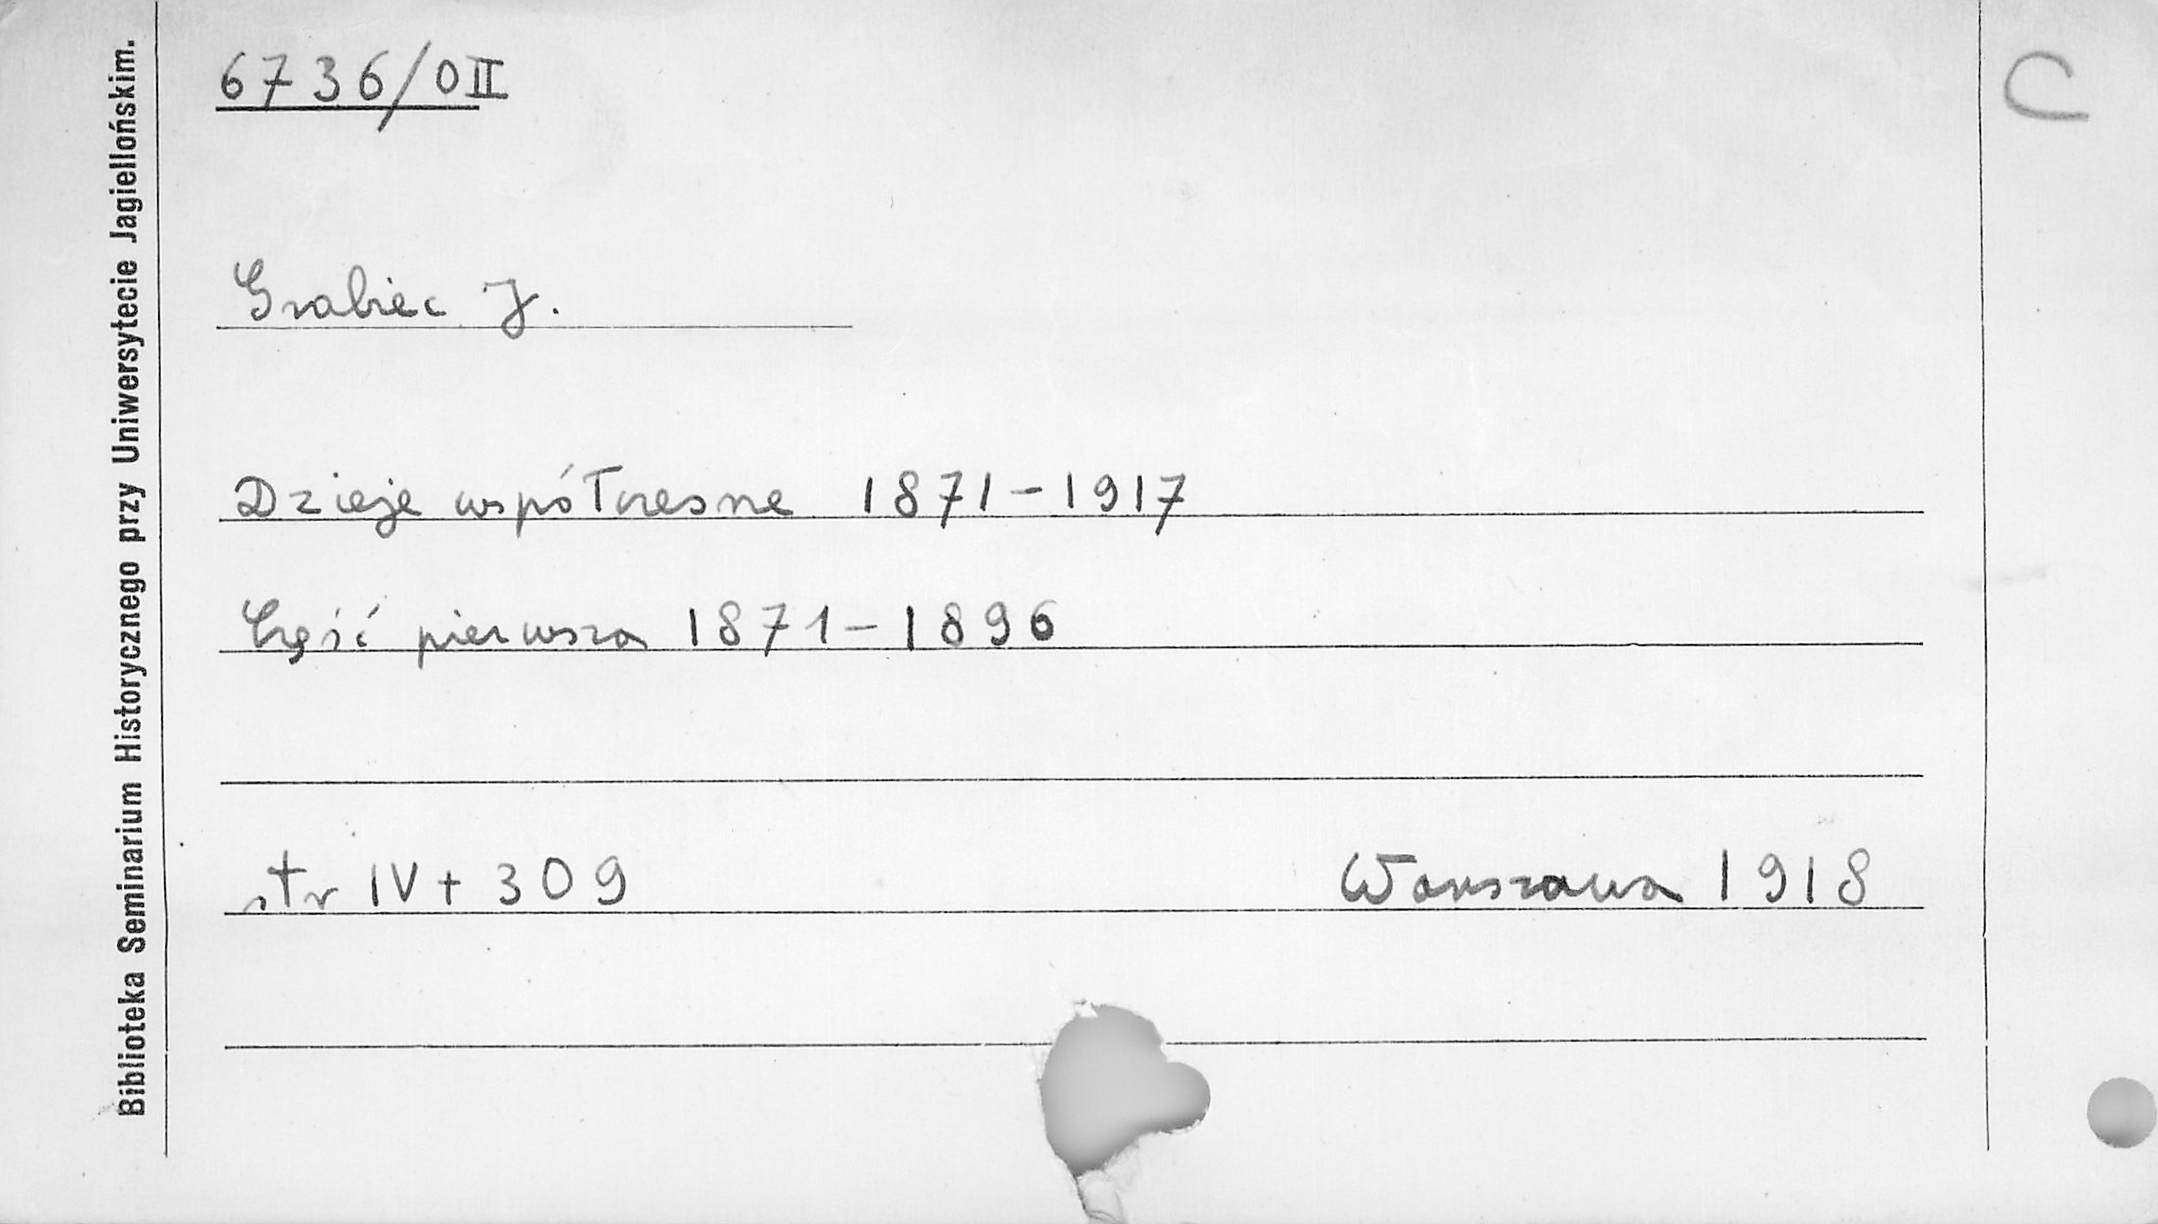 6736/0II
C
Grabiec J.
Dzieje współczesne 1871-1917
Część pierwsza 1871-1896
str IV + 309
Warszawa 1918
Biblioteka Seminarium Historycznego przy Uniwersytecie Jagiellońskim.